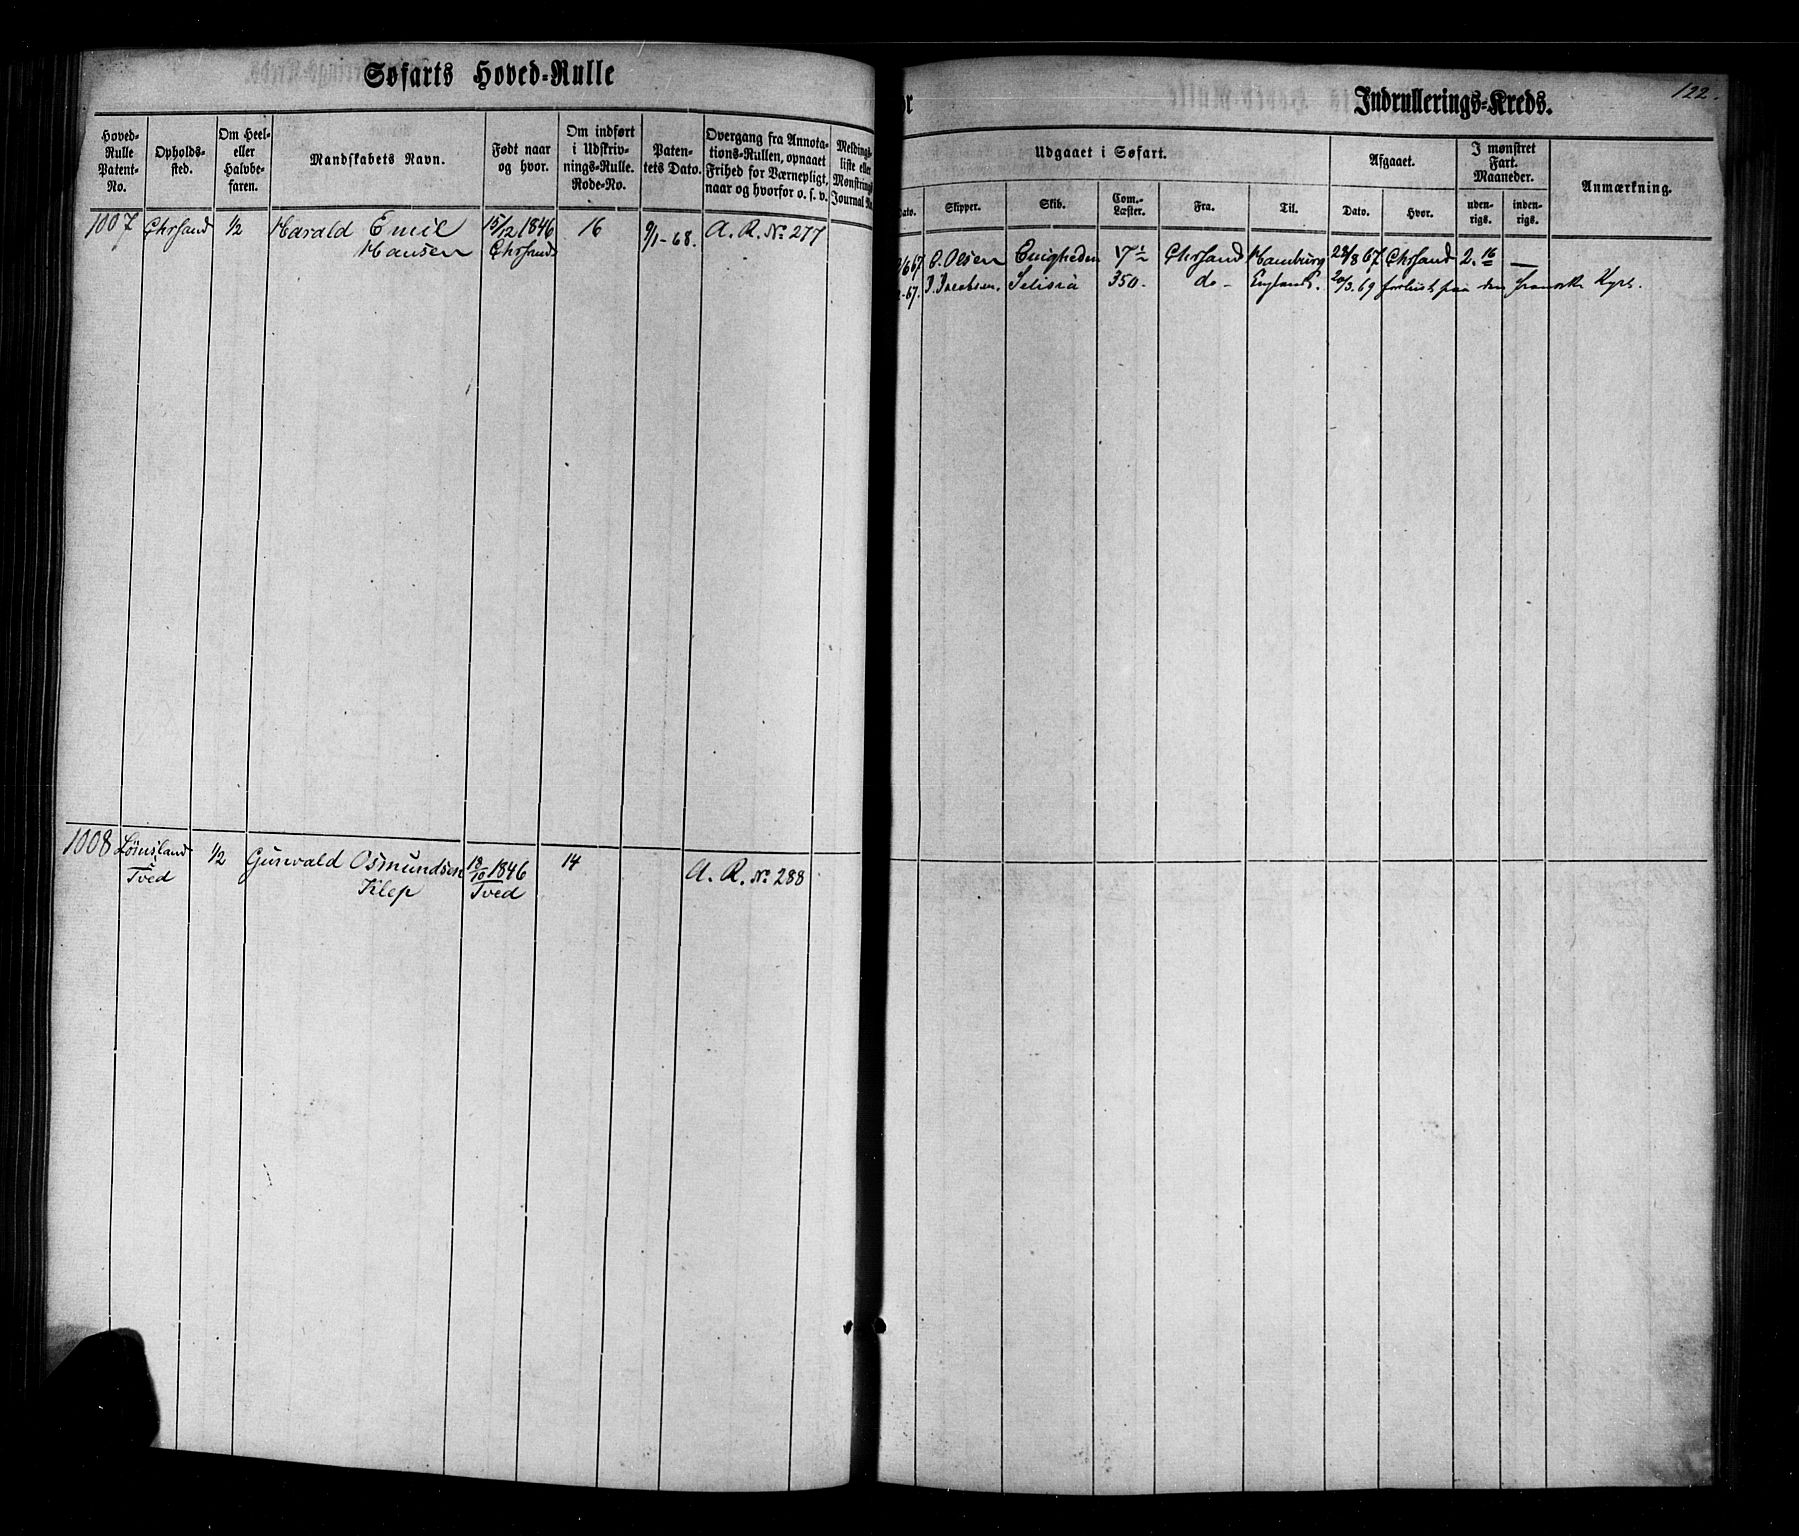 Søfarts Hoved-Rulle
Indrullerings-Kreds.
122.
Hoved-
Rulle
Patent-
No.
Opholds-
sted.
Om Heel-
eller
Halvbe-
faren.
Mandskabets Navn.
Født naar
og hvor.
Om indført
i Udskriv-
nings-Rulle.
Rode-No.
Paten-
tets Dato.
Overgang fra Annota-
tions-Rullen, opnaaet
Frihed for Værnepligt,
naar og hvorfor o. s. v.
Meldings-
liste eller
Mønstrings
Journal No.
Udgaaet i Søfart.
Dato.
Skipper.
Skib.
Com.-
Læster.
Fra.
Til.
Afgaaet.
Dato.
Hvor.
I mønstret
Fart.
Maaneder.
uden-
rigs.
inden-
rigs.
Anmærkning.
1007 Chrsand 1/2 Harald Emil 15/12 1846 16 9/1-68. A. R. No 277
Hansen Chrsand
/6 67 C. Olsen Enigheden Chrsand Hamburg 28/8 67 Chrsand 2. 16 —
-67. J. Jacobsen. 350. do - England. 20/3. 69 forliist paa den franske Kyst.
1008 Lømsland 1/2 Gunvald Osmundsen 18/10 1846 14 A. R. No 288
Tved Klep Tved